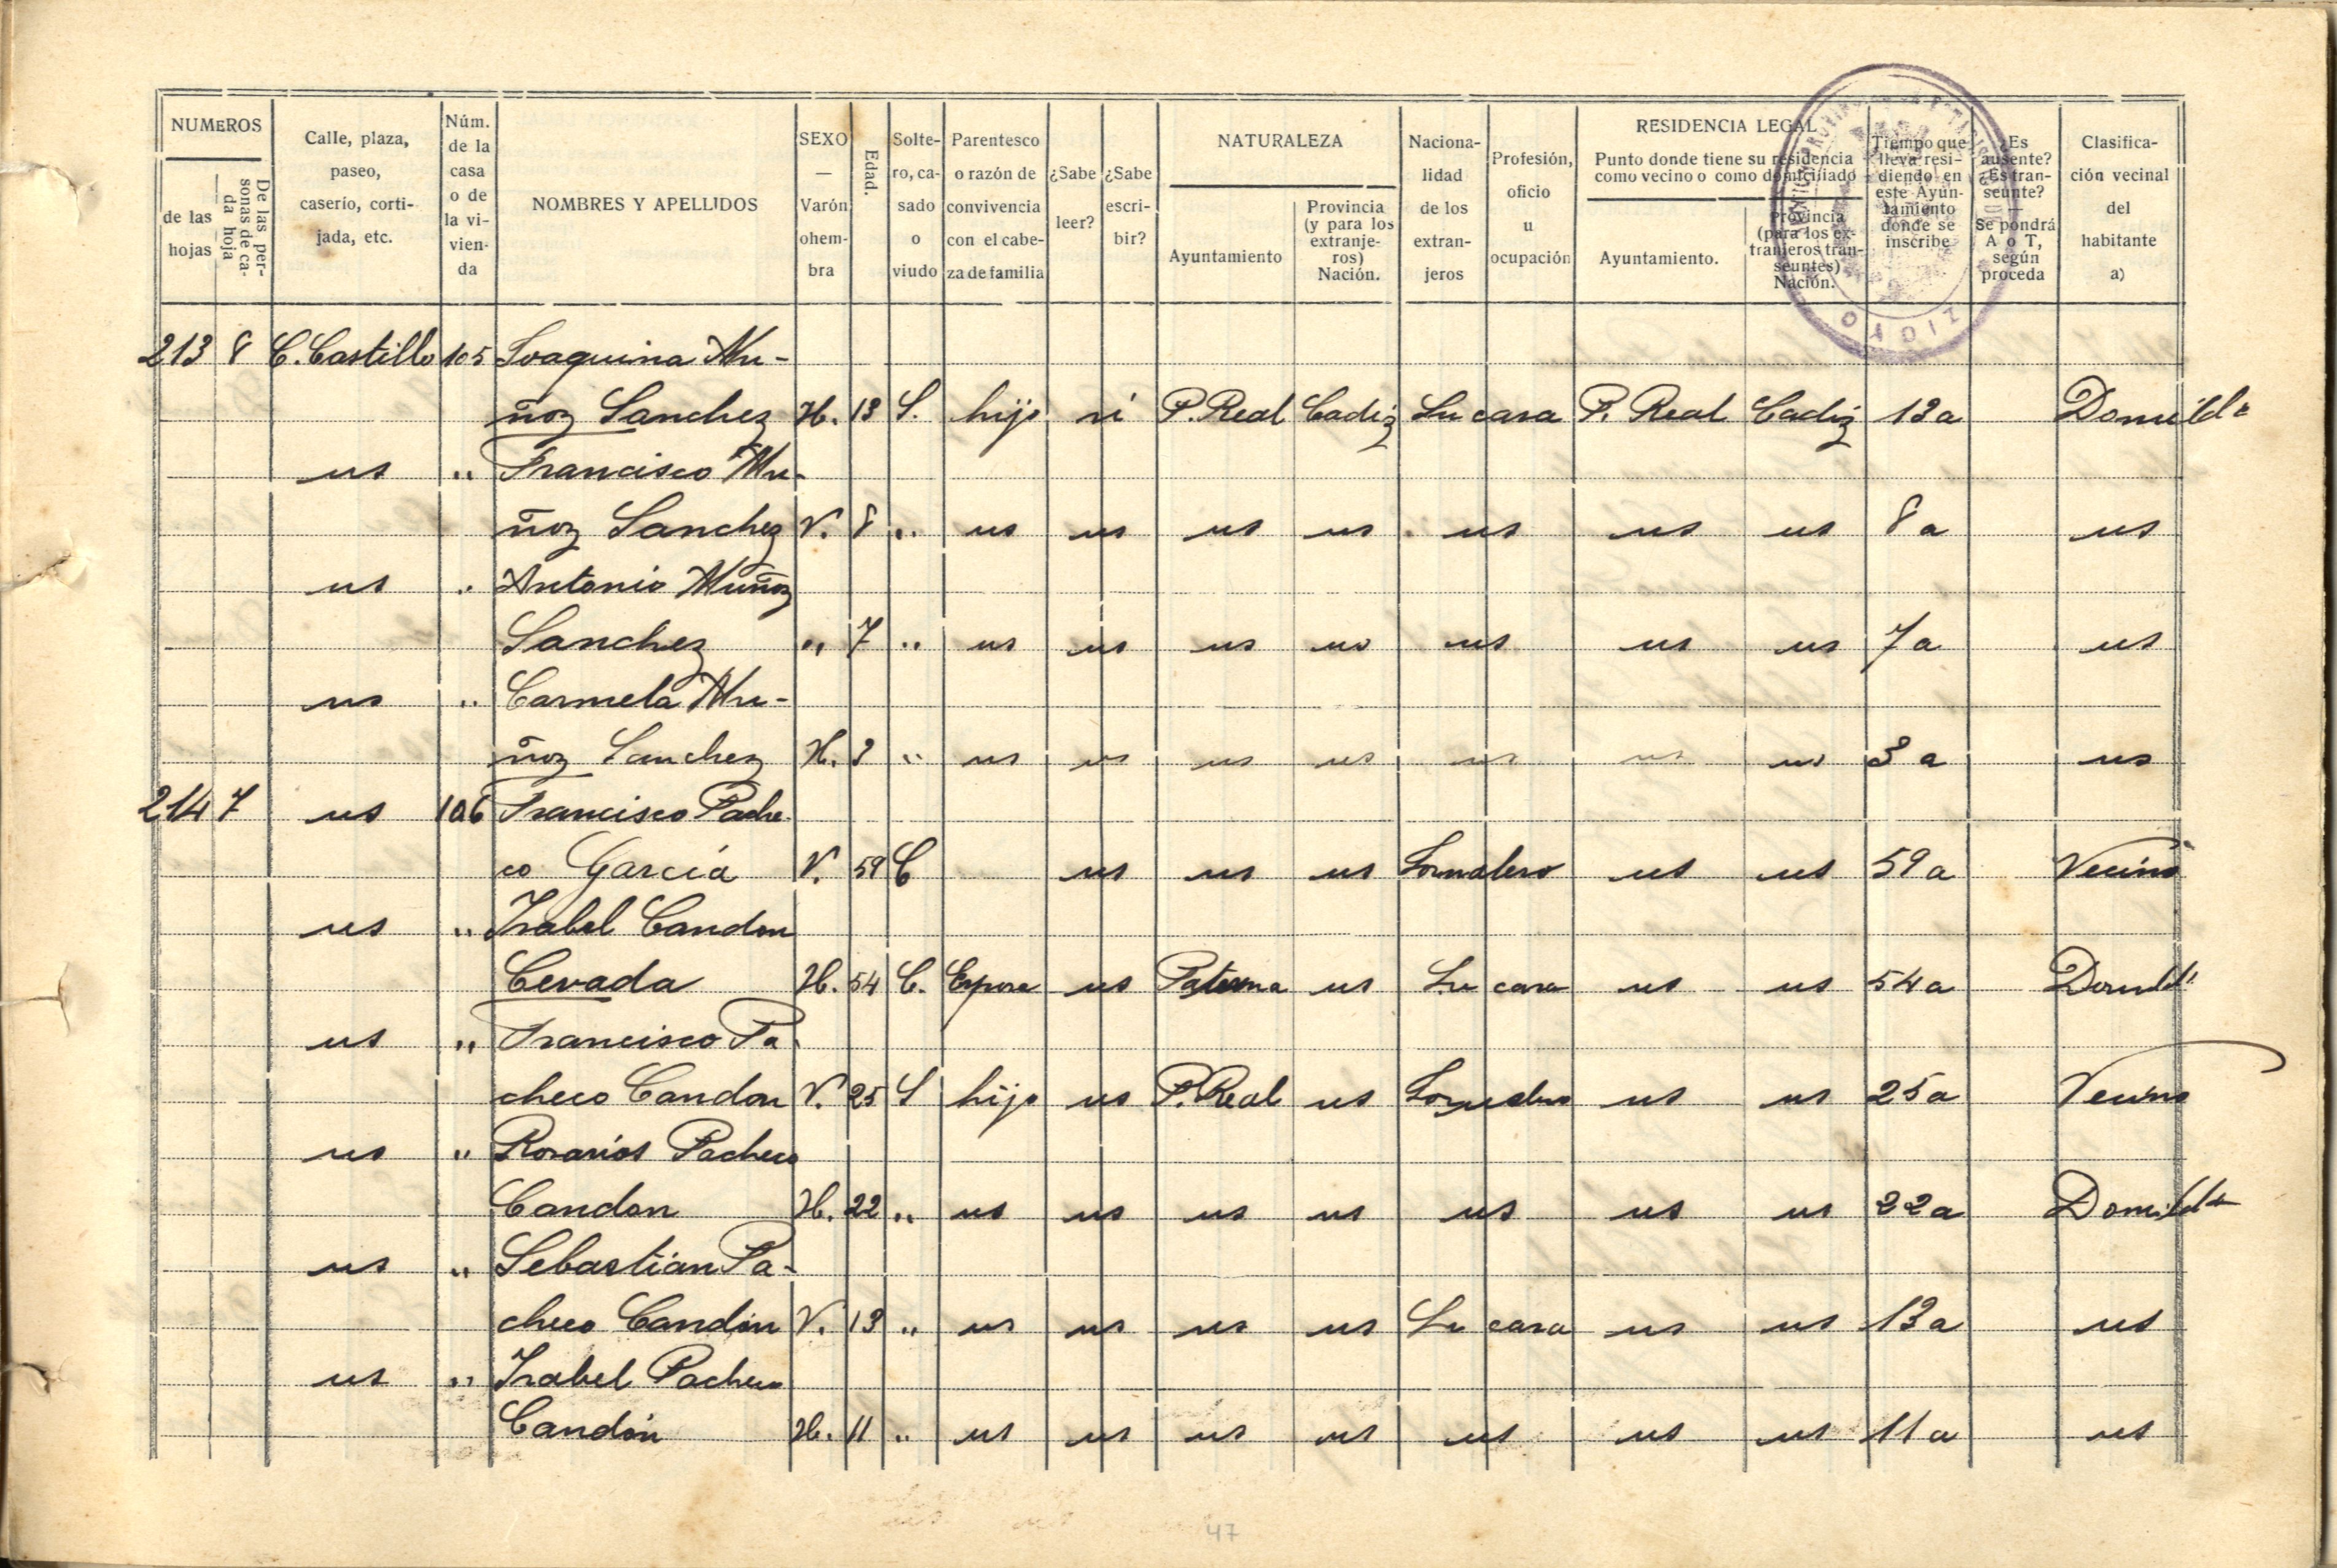 NUMEROS
de las hojas
De las personas de cada hoja
Calle, plaza, paseo, caserío, cortijada, etc.
Núm. de la casa o de la vivienda
NOMBRES Y APELLIDOS
SEXO — Varón o hembra
Edad.
Soltero, casado o viudo
Parentesco o razón de convivencia con el cabeza de familia
¿Sabe leer?
¿Sabe escribir?
NATURALEZA
Ayuntamiento
Provincia (y para los extranjeros) Nación.
Nacionalidad de los extranjeros
Profesión, oficio u ocupación
RESIDENCIA LEGAL
Punto donde tiene su residencia como vecino o como domiciliado
Ayuntamiento.
Provincia (para los extranjeros transeuntes) Nación.
Tiempo que lleva residiendo en este Ayuntamiento donde se inscribe
¿Es ausente? ¿Es transeúnte? — Se pondrá A o T, según proceda
Clasificación vecinal del habitante a)
213 8 C. Castillo 105 Joaquina Mu-
ñoz Sanchez H. 13 S. hijo si P. Real Cadiz Su casa P. Real Cadiz 13 a Domild º
us " Francisco Mu-
ñoz Sanchez V. 8 " us us us us us us us 8 a us
us " Antonio Muñoz
Sanchez " 7 " us us us us us us us 7 a us
us " Carmela Mu-
ñoz Sanchez H. 3 " us us us us us us us 3 a us
214 7 us 106 Francisco Pache
co García V. 59 C us us us Jornalero us us 59 a Vecino
us " Isabel Candon
Cevada H. 54 C. Esposa us Paterna us Su casa us us 54 a Domild º
us " Francisco Pa-
checo Candon V. 25 S hijo us P. Real us Jornalero us us 25 a Vecino
us " Rosarios Pacheco
Candon H. 22 " us us us us us us us 22 a Domild º
us " Sebastian Pa-
checo Candón V. 13 " us us us us Su casa us us 13 a us
us " Isabel Pacheco
Candón H. 11 " us us us us us us us 11 a us
47